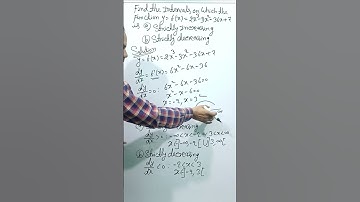 Find the Intervals on which the
function y = f(x) = 2x³-3x²-36x+7
is ⓐ Strictly increasing
ⓑ Strictly decreasing
Solution
y = f(x) = 2x³-3x²-36x+7
dy/dx = f'(x) = 6x²-6x-36
dy/dx = 0 : 6x²-6x-36=0
x²-x-6=0
x = -2, x = 3
increasing
dy/dx > 0
ⓑ Strictly decreasing
dy/dx < 0 : -2<x<3
x∈]-2, 3[